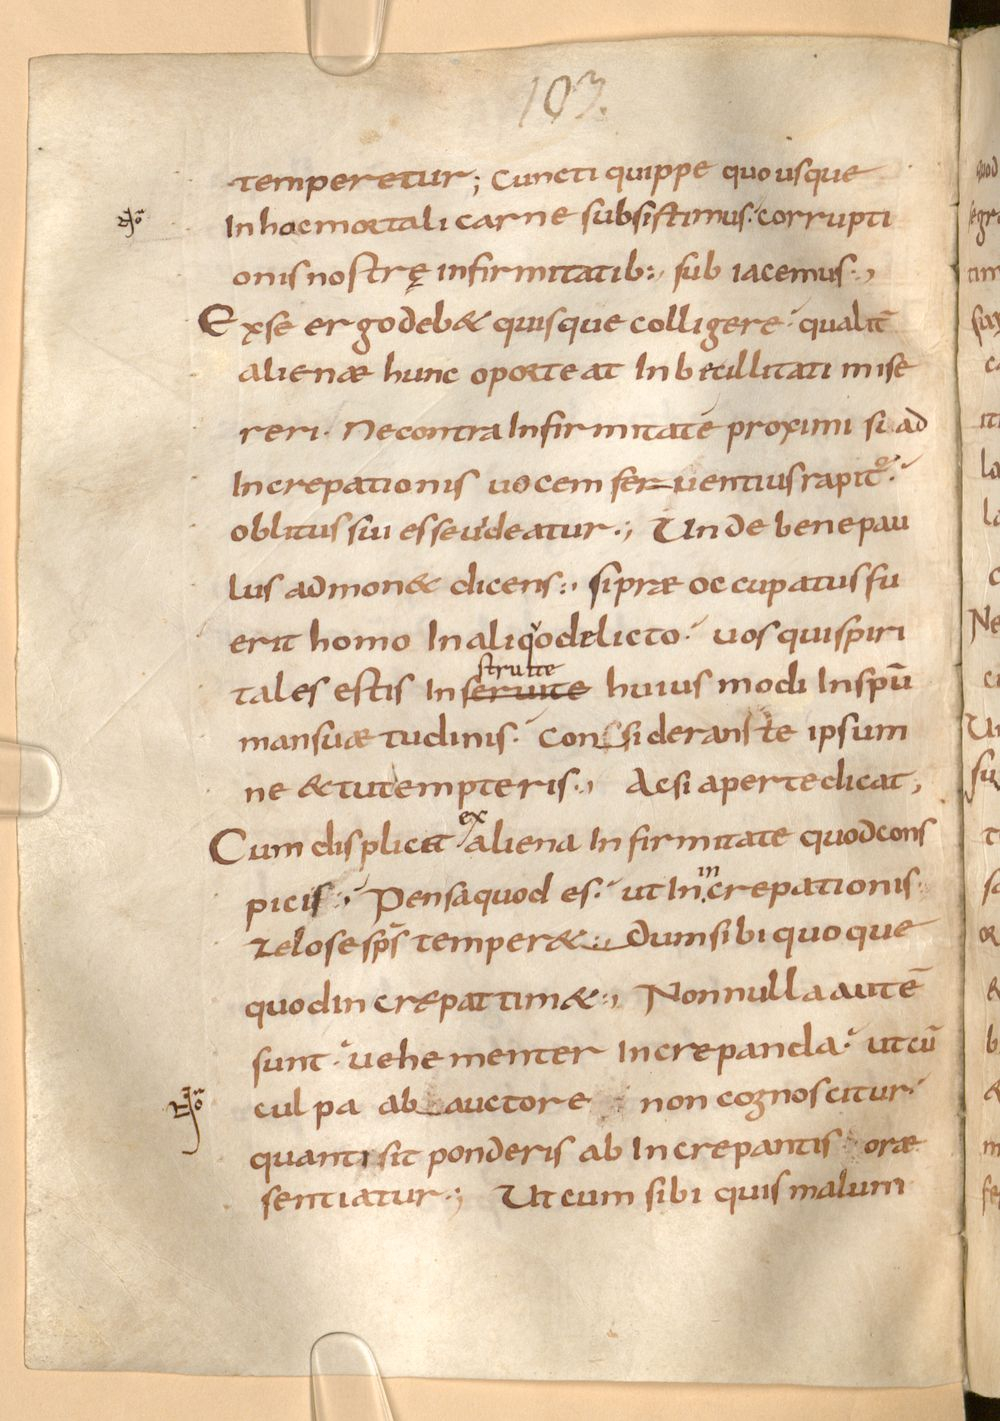 103.
temperetur; Cuncti quippe quousque
In hac mortali carne subsistimus. corrupti
onis nostrę infirmitatib:, sub iacemus:,
Exse ergo deb& quisque colligere. qualit̄
alienæ hunc oporteat Inbecillitati mise
reri. Ne contra Infirmitatē proximi si ad
Increpationis uocem feruentius rapitᷣ.
oblitus sui esse uideatur:, Unde bene pau
lus admon& dicens:, si præoccupatus fu
erit homo In aliqọ delicto. uos qui spiri
struite
tales estis Inseruite huius modi In spū
mansuætudinis. Considerans te ipsum
ne & tu tempteris:, Ac si aperte dicat,
ex
Cum displicet aliena Infirmitate quod cons
in
picis:, Pensa quod es. ut Increpationis
zelo se sp̄s temper&:, dum sibi quoque
quod increpat tim&:, Nonnulla autē
sunt. uehementer Increpanda. ut cū
culpa ab auctore non cognoscitur.
quanti sit ponderis ab Increpantis oræ
sentiatur:, Ut cum sibi quis malum